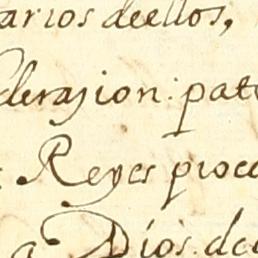 arios deellos,
derasion: pat
Reyes proce
a Dios. de